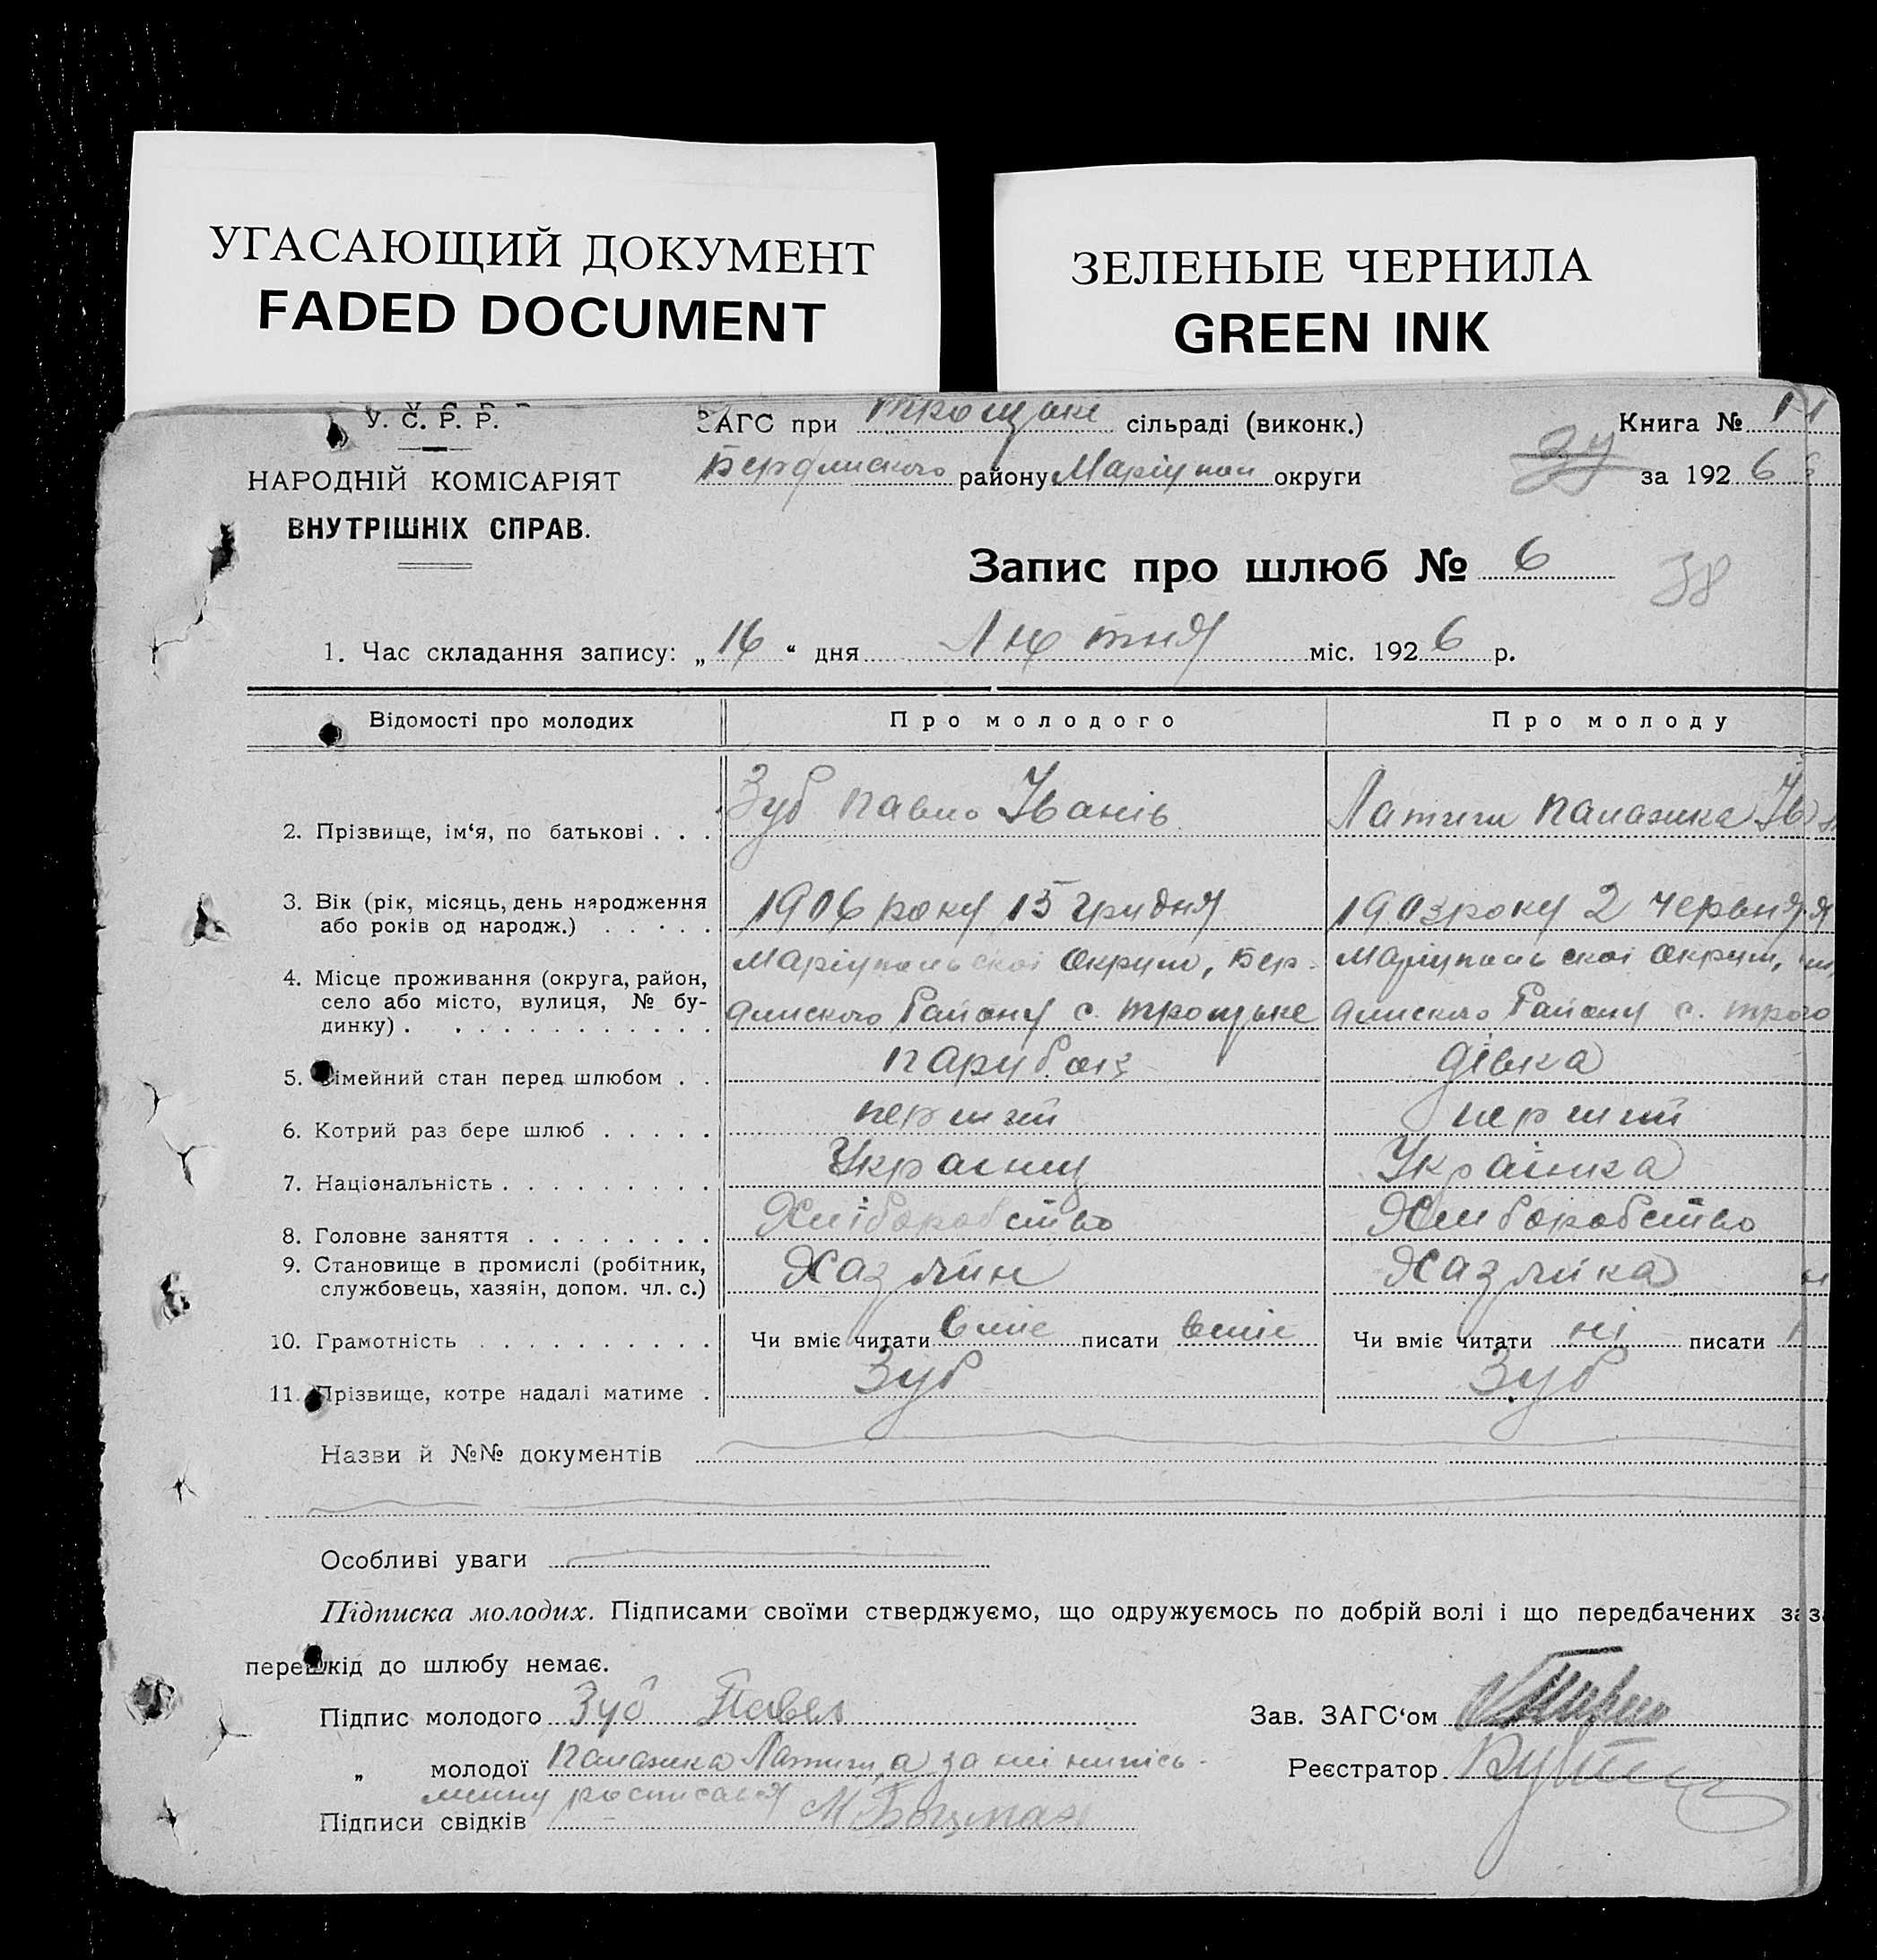 УГАСАЮЩИЙ ДОКУМЕНТ
FADED DOCUMENT
ЗЕЛЕНЫЕ ЧЕРНИЛА
GREEN INK
У. С. Р. Р.
НАРОДНІЙ КОМІСАРІЯТ
ВНУТРІШНІХ СПРАВ.
ЗАГС при Троцьке сільраді (виконк.)
Бердянського району Маріупол округи
Книга №
за 1926
38
Запис про шлюб № 6
1. Час складання запису: „16“ дня Лютня міс. 1926 р.
Відомості про молодих Про молодого Про молоду
2. Прізвище, ім‘я, по батькові . . . Зуб Павло Іванів Латиш Палажка Ів
3. Вік (рік, місяць, день народження
або років од народж.) . . . . . 1906 року 15 Грудня 1903 року 2 Червня
4. Місце проживання (округа, район, Маріупольскоі Округи, Бер- Маріупольскоі Округи,
село або місто, вулиця, № бу-
динку) . . . . . . . . . . . . дянского Району с. Троцьке дянского Району с. Троц
5. Сімейний стан перед шлюбом . . парубок дівка
6. Котрий раз бере шлюб . . . . . перший перший
7. Національність . . . . . . . . . Украінц Украінка
8. Головне заняття . . . . . . . . Хліборобство Хліборобство
9. Становище в промислі (робітник,
службовець, хазяін, допом. чл. с.) Хазяйн Хазяйка
10. Грамотність . . . . . . . . . . Чи вміє читати вміє писати вміє Чи вміє читати ні писати
11. Прізвище, котре надалі матиме . Зуб Зуб
Назви й №№ документів
Особливі уваги
Підписка молодих. Підписами своїми стверджуємо, що одружуємось по добрій волі і що передбачених
перешкід до шлюбу немає.
Підпис молодого Зуб Павел
Зав. ЗАГС‘ом
„ молодої Палажка Латиш, а за ні нипісь-
Реєстратор
менну росписався
Підписи свідків М Боцман